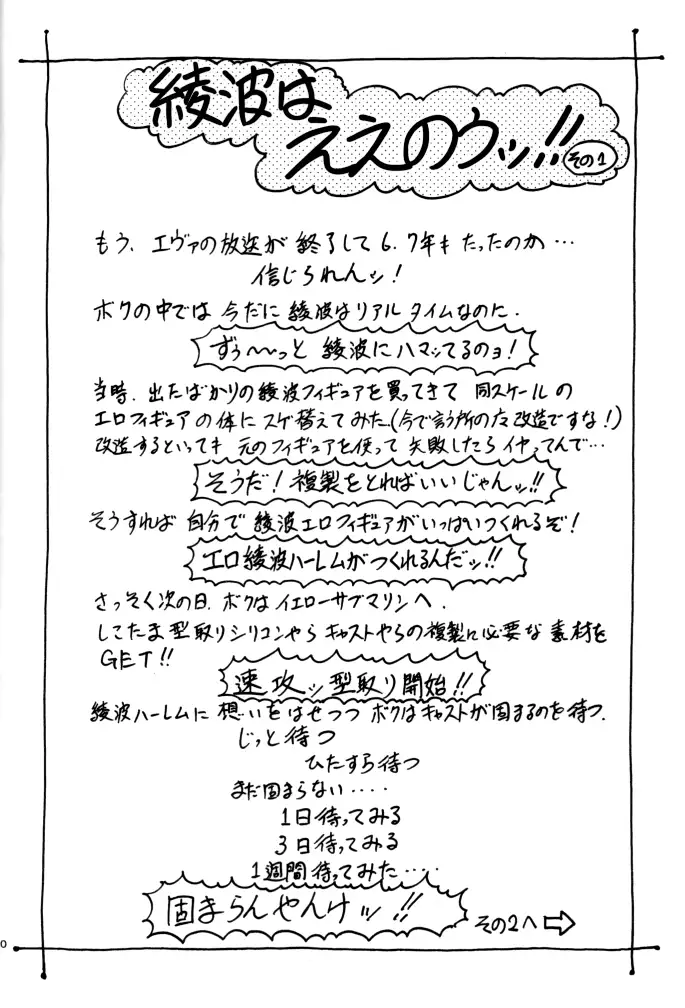 綾波は
ええのウッ!!
その1
もう、エヴァの放送が終了して6.7年もたったのか…
信じられんッ!
ボクの中では今だに綾波はリアルタイムなのに.
ずぅ〜〜っと 綾波にハマッてるのョ!
当時.出たばかりの綾波フィギュアを買ってきて 同スケールの
エロフィギュアの体にスゲ替えてみた.(今で言う所の 改造ですな!)
改造するといっても 元のフィギュアを使って 失敗したらイヤってんで…
そうだ!複製をとればいいじゃんッ!!
そうすれば 自分で 綾波エロフィギュアがいっぱいつくれるぞ!
エロ綾波ハーレムがつくれるんだッ!!
さっそく次の日.ボクはイエローサブマリンへ.
しこたま 型取りシリコンやら キャストやらの複製に必要な 素材を
GET!!
速攻ッ型取り開始!!
綾波ハーレムに 想いをはせつつ ボクはキャストが固まるのを待つ.
じっと待つ
ひたすら待つ
まだ固まらない‥‥
1日待ってみる
3日待ってみる
1週間待ってみた‥‥
固まらんやんけッ!!
その2へ⇨
0